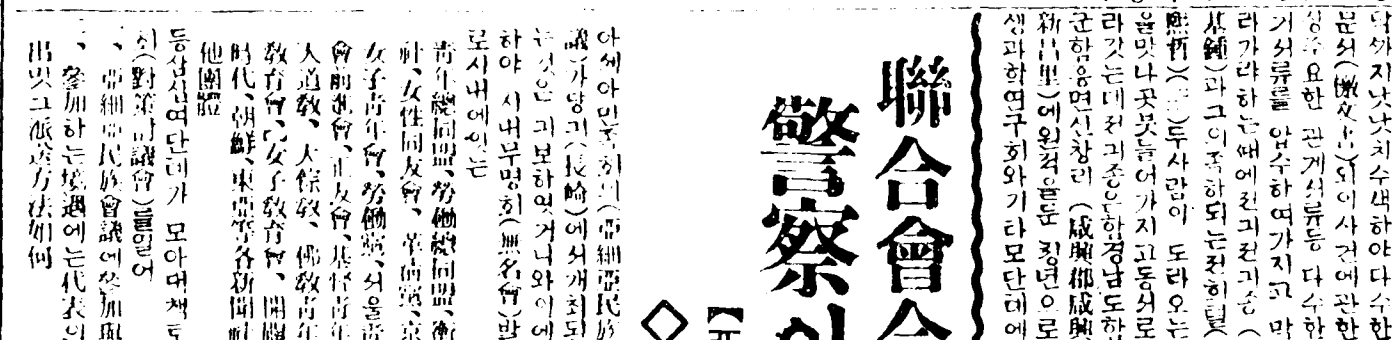 낫낫치수색하야다수한
문서
중요한 관계서류등 다수한
거서류를 압수하여가지고 막
라가랴하는때에전긔전긔종(
基鍾)과그이족하되는전히텰(
熙哲)(二)두사람이 도라오는
을맛나곳붓들어가지고동서로
라갓는데전긔종은함경남도함
군함흥면신창리(咸興郡咸興
新昌里)에원적을둔 청년으로
생과학연구회와기타모단톄에
聯合會合
警察이
아세아민족회의(亞細亞民族
議)가당긔(長崎)에서개최되
는것은 긔보하엿거니와이에
하야 시내무명회(無名會)발
로시내에잇는
靑年總同盟、勞働總同盟、衡
社、女性同友會、革淸黨、京
女子靑年會、勞働黨、서울靑
會前進會、正友會、基督靑年
天道敎、大倧敎、佛敎靑年
敎育會、女子敎育會、開闢
時代、朝鮮、東亞等各新聞社
他團體
등삼십여단톄가 모아대책토
회(對策討議會)를열어
一、亞細亞民族會議에參加與
一、參加하는境遇에는代表의
出及그派送方法如何